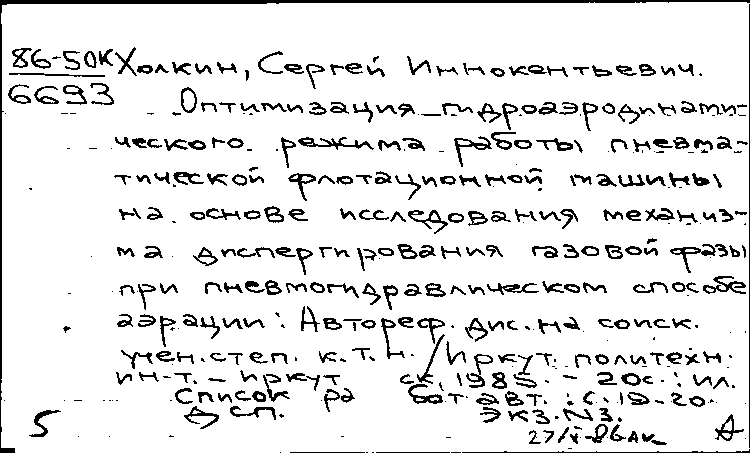 86-50К Холкин, Сергей Иннокентьевич.
6693 Оптимизация гидроаэродинами-
ческого режима работы пневма-
тической флотационной машины
на основе исследования механиз-
ма диспергирования газовой фазы
при пневмогидравлическом способе
аэрации: Автореф. дис. на соиск.
учен. степ. к.т.н. / Иркут. политехн.
ин-т. - Иркутск, 1985. - 20с.: ил.
Список работ авт.: с. 19-20.
ДСП. Экз. N3.
5 27/V-86